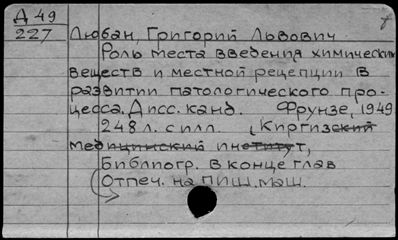 Д 49
227
Любан, Григорий Львович
Роль места введения химических
веществ и местной рецепции в
развитии патологического про-
цесса. Дисс. канд. Фрунзе, 1949
248 л. с илл. (Киргизский
медицинский институт,
Библиогр. в конце глав
Отпеч. на пиш. маш.